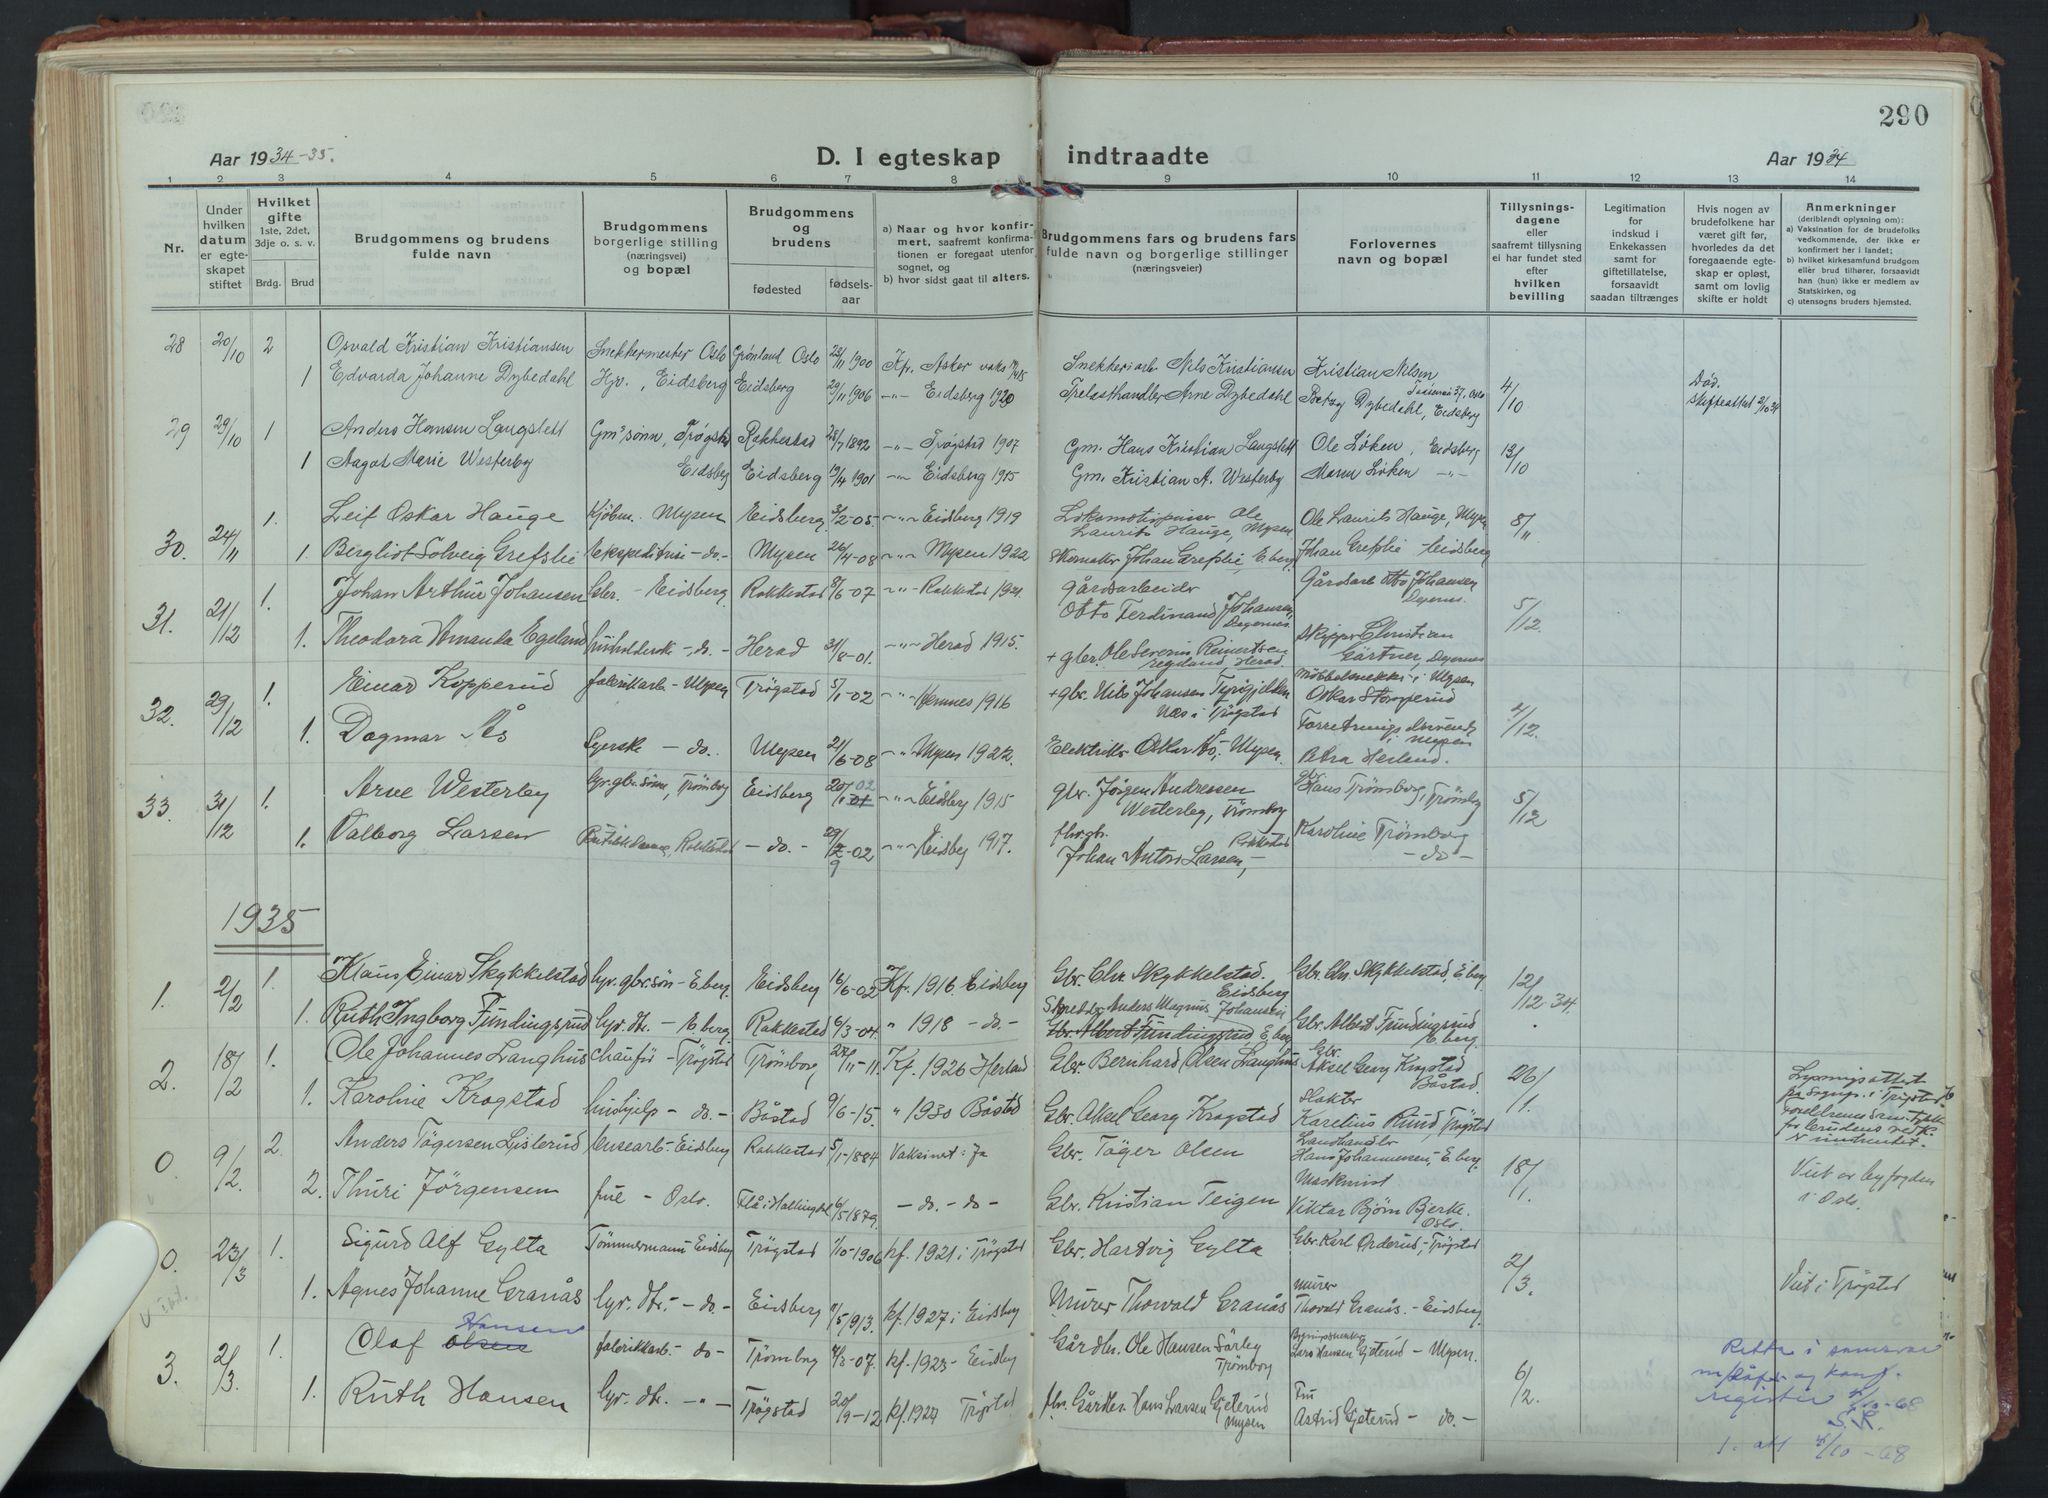 290
Aar 1934-35.
D. I egteskap indtraadte
Aar 1934
1 2 3 4 5 6 7 8 9 10 11 12 13 14
Nr.
Under hvilken datum er egteskapet stiftet
Hvilket gifte 1ste, 2det, 3dje o. s. v.
Brdg. Brud
Brudgommens og brudens fulde navn
Brudgommens borgerlige stilling (næringsvei) og bopæl
Brudgommens og brudens
fødested
fødselsaar
a) Naar og hvor konfirmert, saafremt konfirmationen er foregaat utenfor sognet, og
b) hvor sidst gaat til alters.
Brudgommens fars og brudens fars fulde navn og borgerlige stillinger (næringsveier)
Forlovernes navn og bopæl
Tillysningsdagene eller saafremt tillysning ei har fundet sted efter hvilken bevilling
Legitimation for indskud i Enkekassen samt for giftetillatelse, forsaavidt saadan tiltrænges
Hvis nogen av brudefolkene har været gift før, hvorledes da det foregaaende egteskap er opløst, samt om lovlig skifte er holdt
Anmerkninger
(deriblendt oplysning om):
a) Vaksination for de brudefolks vedkommende, der ikke er konfirmert her i landet;
b) hvilket kirkesamfund brudgom eller brud tilhører, forsaavidt han (hun) ikke er medlem av Statskirken, og
c) utensogns bruders hjemsted.
28 20/10 2 Osvald Kristian Kristiansen Snekkermester Oslo Grønland Oslo 23/11 1900 Kf. Asker Snekkeriarb. Nils Kristiansen Kristian Nilsen
1 Edvarda Johanne Dybedahl Hjv., Eidsberg Eidsberg 29/11 1906 -"- Eidsberg 1920 Trelasthandler Arne Dybedahl Betzy Dybedahl, Eidsberg 4/10 Død. Skifteattest
29 29/10 1 Anders Hansen Langslett Gm's sønn, Trøgstad Rakkestad 28/7 1892 -"- Trøgstad 1907 Gm. Hans Kristian Langslett Ole Løken, Eidsberg 13/10
1 Aagot Marie Westerby Eidsberg Eidsberg 19/4 1901 -"- Eidsberg 1915 Gm. Kristian A. Westerby Maren Løken -"-
30. 24/11 1. Leif Oskar Hauge Kjøbm. Mysen Eidsberg 3/2-05. -"- Eidsberg 1919 Ole Laurits Hauge, Mysen Ole Laurits Hauge, Mysen 8/11
1. Bergliot Solveig Grefslie -do- Mysen 26/4-08 -"- Mysen 1922 Skomaker Johan Grefslie, E.berg Johan Grefslie - Eidsberg
31. 21/12 1. Johan Arthur Johansen Gbr. - Eidsberg Rakkestad 8/6-07 -"- Rakkestad 1921. Gårdsarbeider Otto Ferdinand Johansen, Degernes. Gårdsarb. Otto Johansen Degernes. 5/12.
1. Theodora Amanda Egeland husholderske -do.- Herad 31/8-01. -"- Herad 1915. + gbr. Ole Severin Reinertsen Egeland, Herad. Skipper Christian Gärtner, Degernes
32. 29/12 1. Einar Kopperud fabrikkarb. - Mysen Trøgstad 5/1-02 -"- Hemnes 1916 + gbr. Nils Johansen Næs i Trøgstad Mysen Oskar 4/12.
1. Dagmar Ås Syerske - do. Mysen 21/6-08 -"- Mysen 1922. Elektriker Oskar Ås, Mysen Petra Herland.
33. 31/12 1. Arve Westerby Gbr. sønn, Trømborg Eidsberg 20/1 02 -"- Eidsberg 1915 gbr. Jørgen Andressen Westerby, Trømborg gbr. Hans Trømborg, Trømborg 5/12
1. Valborg Larsen Butikkdame, Rakkestad -do.- 29/9-02 -"- Eidsberg 1917. Johan Anton Larsen, Rakkestad Karoline Trømborg -do-
1935
1. 2/2 1. Klaus Einar Skykkelstad Gbr. søn - E.berg. Eidsberg 16/6-02 Kf. 1916. Eidsberg Gbr. Chr. Skykkelstad. Eidsberg Gbr. Chr. Skykkelstad, E.berg. 12/12-34.
1. Ruth Ingborg Fundingsrud - E.berg. Rakkestad 6/3-04. " 1918 -do.- Anders Magnus Johansen Gbr. Albert Fundingsrud, E.berg Gbr. Albert Fundingsrud E.berg.
2. 18/2 1. Ole Johannes Langhus chauför - Trøgstad Trømborg 27/11-11. Kf. 1926 Herland Gbr. Bernhard Olsen Langhus Gbr. Aksel Georg Krogstad Båstad. 26/1.
1. Karoline Krogstad hushjelp - do. - Båstad 9/6-15. " 1930 Båstad Gbr. Aksel Georg Krogstad Slakter Karelius Rud, Trøgstad
0. 9/2. 2. Anders Tögersen Lislerud - Eidsberg Rakkestad 5/1-1884 Vaksinert: Ja Gbr. Töger Olsen Landhandler Hans Johannessen, E.berg. 18/1. Viet av byfogden i Oslo.
2. Thuri Jörgensen frue - Oslo. Flå i Hallingdal 6/5 1879. - do. - do - Gbr. Kristian Teigen Maskinist Viktor Bjørn Bjerke. Oslo.
0. 23/3 1. Sigurd Alf Gylta Tømmermann Eidsberg Trøgstad 7/10-1906 kf. 1921 i Trøgstad Gbr. Hartvig Gylta Gbr. Karl Orderud, Trøgstad 2/3. Viet i Trøgstad
1. Agnes Johanne Granås Gbr. dtr. - do - Eidsberg 11/5 1913. kf. 1927 i Eidsberg Murer Thorvald Granås Murer Thorvald Granås. - Eidsberg
3. 2/3. 1. Olaf Olsen Hansen fabrikkarb. - do - Trømborg 7/3-07. kf. 1923 - Eidsberg Gårdbr. Ole Hansen Sørby Trømborg Lars Hansen Gjeterud - Mysen. 6/2.
1. Ruth Hansen Gbr. dtr. - " - Trøgstad 20/9-12 kf. 1927 Trøgstad Gårdbr. Hans Larsen Gjeterud Mysen Fru Astrid Gjeterud - do. -
Rettet i samsvar m/ dåps- og konf. register 4/10-68
S.K.
1. att 4/10-68